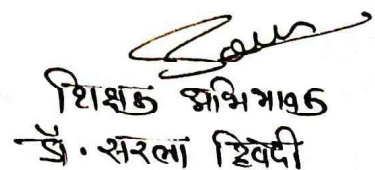 शिक्षक अभिभावक
डॉ. सरला द्विवेदी